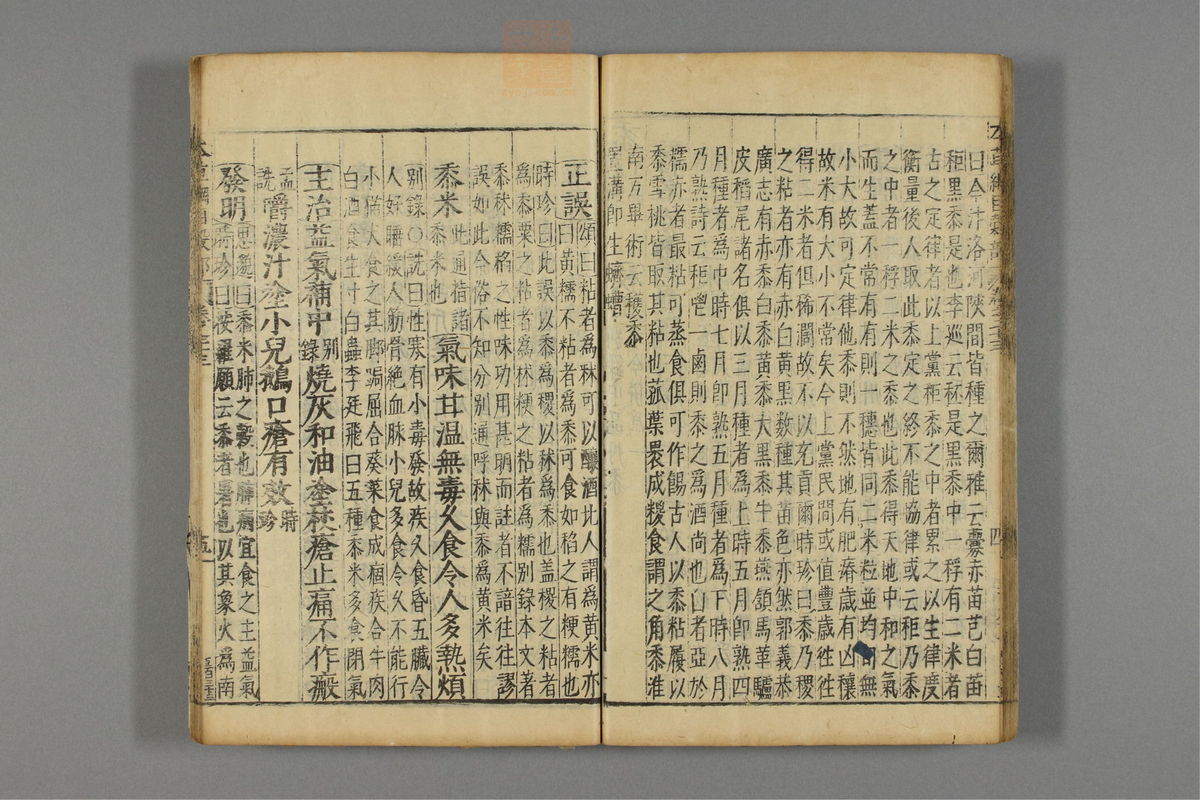 曰今汴洛河陝間皆種之爾雅云虋赤苗芑白苗
秬黑黍是也李巡云秠是黑黍中一稃有二米者
古之定律者以上黨秬黍之中者累之以生律度
衡量後人取此黍定之終不能協律或云秬乃黍
之中者一稃二米之黍也此黍得天地中和之氣
而生蓋不常有有則一穗皆同二米粒並均勻無
小大故可定律他黍則不然地有肥瘠歲有凶穰
故米有大小不常矣今上黨民間或值豐歲往往
得二米者但稀濶故不以充貢爾時珍曰黍乃稷
之粘者亦有赤白黄黑数種其苗色亦然郭義恭
廣志有赤黍白黍黄黍大黑黍牛黍燕頷馬革驢
皮稻尾諸名俱以三月種者爲上時五月即熟四
月種者爲中時七月即熟五月種者爲下時八月
乃熟詩云秬鬯一卣則黍之爲酒尚也白者亞於
糯赤者最粘可蒸食俱可作餳古人以黍粘履以
黍雪桃皆取其粘也菰葉裹成糉食謂之角黍淮
南万畢術云穫黍
置溝即生蠐螬
正誤 頌曰粘者爲秫可以釀酒北人謂爲黄米亦
曰黄糯不粘者爲黍可食如稻之有粳糯也
時珍曰此誤以黍爲稷以秫爲黍也盖稷之粘者
爲黍粟之粘者爲秫粳之粘者爲糯别錄本文著
黍秫糯稻之性味功用甚明而註者不諳往往謬
誤如此今俗不知分别通呼秫與黍爲黄米矣
黍米 此通指諸黍米也 氣味甘温無毒久食令人多熱煩
别錄〇詵曰性寒有小毒發故疾久食昏五臟令
人好睡緩人筋骨絶血脉小兒多食令久不能行
小猫犬食之其脚跼屈合葵菜食成痼疾合牛肉
白酒食生寸白蟲李廷飛曰五種黍米多食閉氣
主治益氣補中 别錄 燒灰和油塗杖瘡止痛不作瘢
孟詵 嚼濃汁塗小兒鵝口瘡有效 時珍
發明 思邈曰黍米肺之穀也肺病宜食之主益氣
時珍曰按羅願云黍者暑也以其象火爲南